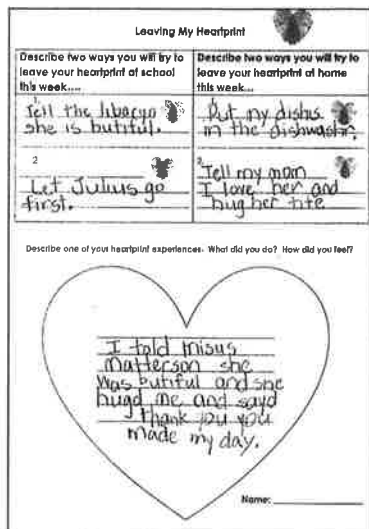 Leaving My Heartprint
Describe two ways you will try to
leave your heartprint at school
this week....
Describe two ways you will try to
leave your heartprint at home
this week...
1.
Tell the libaryn
she is butiful.
2
Let Julius go
first.
Put my dishis
in the dishwashr.
2.
Tell my mom
I love her and
hug her tite
Describe one of your heartprint experiences. What did you do? How did you feel?
I told misus
matterson she
was butiful and she
hugd me and sayd
thank you you
made my day.
Name: